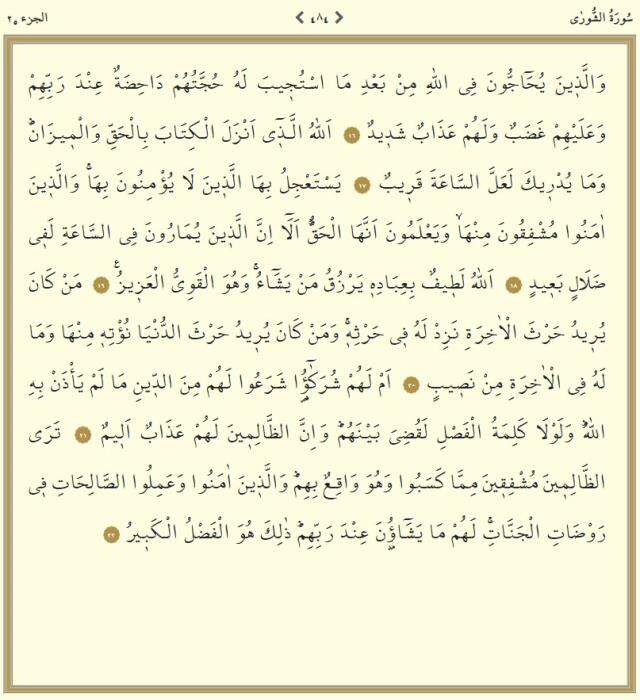 سُورَةُ الشُّورٰى ❮ ٤٨٤ ❯ الجزء ٢٥
وَالَّذ۪ينَ يُحَٓاجُّونَ فِي اللّٰهِ مِنْ بَعْدِ مَا اسْتُج۪يبَ لَهُ حُجَّتُهُمْ دَاحِضَةٌ عِنْدَ رَبِّهِمْ
وَعَلَيْهِمْ غَضَبٌ وَلَهُمْ عَذَابٌ شَد۪يدٌ ١٦ اَللّٰهُ الَّـذ۪ٓي اَنْزَلَ الْكِتَابَ بِالْحَقِّ وَالْم۪يزَانَۜ
وَمَا يُدْر۪يكَ لَعَلَّ السَّاعَةَ قَر۪يبٌ ١٧ يَسْتَعْجِلُ بِهَا الَّذ۪ينَ لَا يُؤْمِنُونَ بِهَاۚ وَالَّذ۪ينَ
اٰمَنُوا مُشْفِقُونَ مِنْهَاۙ وَيَعْلَمُونَ اَنَّهَا الْحَقُّۜ اَلَٓا اِنَّ الَّذ۪ينَ يُمَارُونَ فِي السَّاعَةِ لَف۪ي
ضَلَالٍ بَع۪يدٍ ١٨ اَللّٰهُ لَط۪يفٌ بِعِبَادِه۪ يَرْزُقُ مَنْ يَشَٓاءُۚ وَهُوَ الْقَوِيُّ الْعَز۪يزُ۟ ١٩ مَنْ كَانَ
يُر۪يدُ حَرْثَ الْاٰخِرَةِ نَزِدْ لَهُ ف۪ي حَرْثِه۪ۚ وَمَنْ كَانَ يُر۪يدُ حَرْثَ الدُّنْيَا نُؤْتِه۪ مِنْهَا وَمَا
لَهُ فِي الْاٰخِرَةِ مِنْ نَص۪يبٍ ٢٠ اَمْ لَهُمْ شُرَكٰٓؤُ۬ا شَرَعُوا لَهُمْ مِنَ الدّ۪ينِ مَا لَمْ يَأْذَنْ بِهِ
اللّٰهُۜ وَلَوْلَا كَلِمَةُ الْفَصْلِ لَقُضِيَ بَيْنَهُمْۜ وَاِنَّ الظَّالِم۪ينَ لَهُمْ عَذَابٌ اَل۪يمٌ ٢١ تَرَى
الظَّالِم۪ينَ مُشْفِق۪ينَ مِمَّا كَسَبُوا وَهُوَ وَاقِعٌ بِهِمْۜ وَالَّذ۪ينَ اٰمَنُوا وَعَمِلُوا الصَّالِحَاتِ ف۪ي
رَوْضَاتِ الْجَنَّاتِۚ لَهُمْ مَا يَشَٓاؤُ۫نَ عِنْدَ رَبِّهِمْۜ ذٰلِكَ هُوَ الْفَضْلُ الْكَب۪يرُ ٢٢